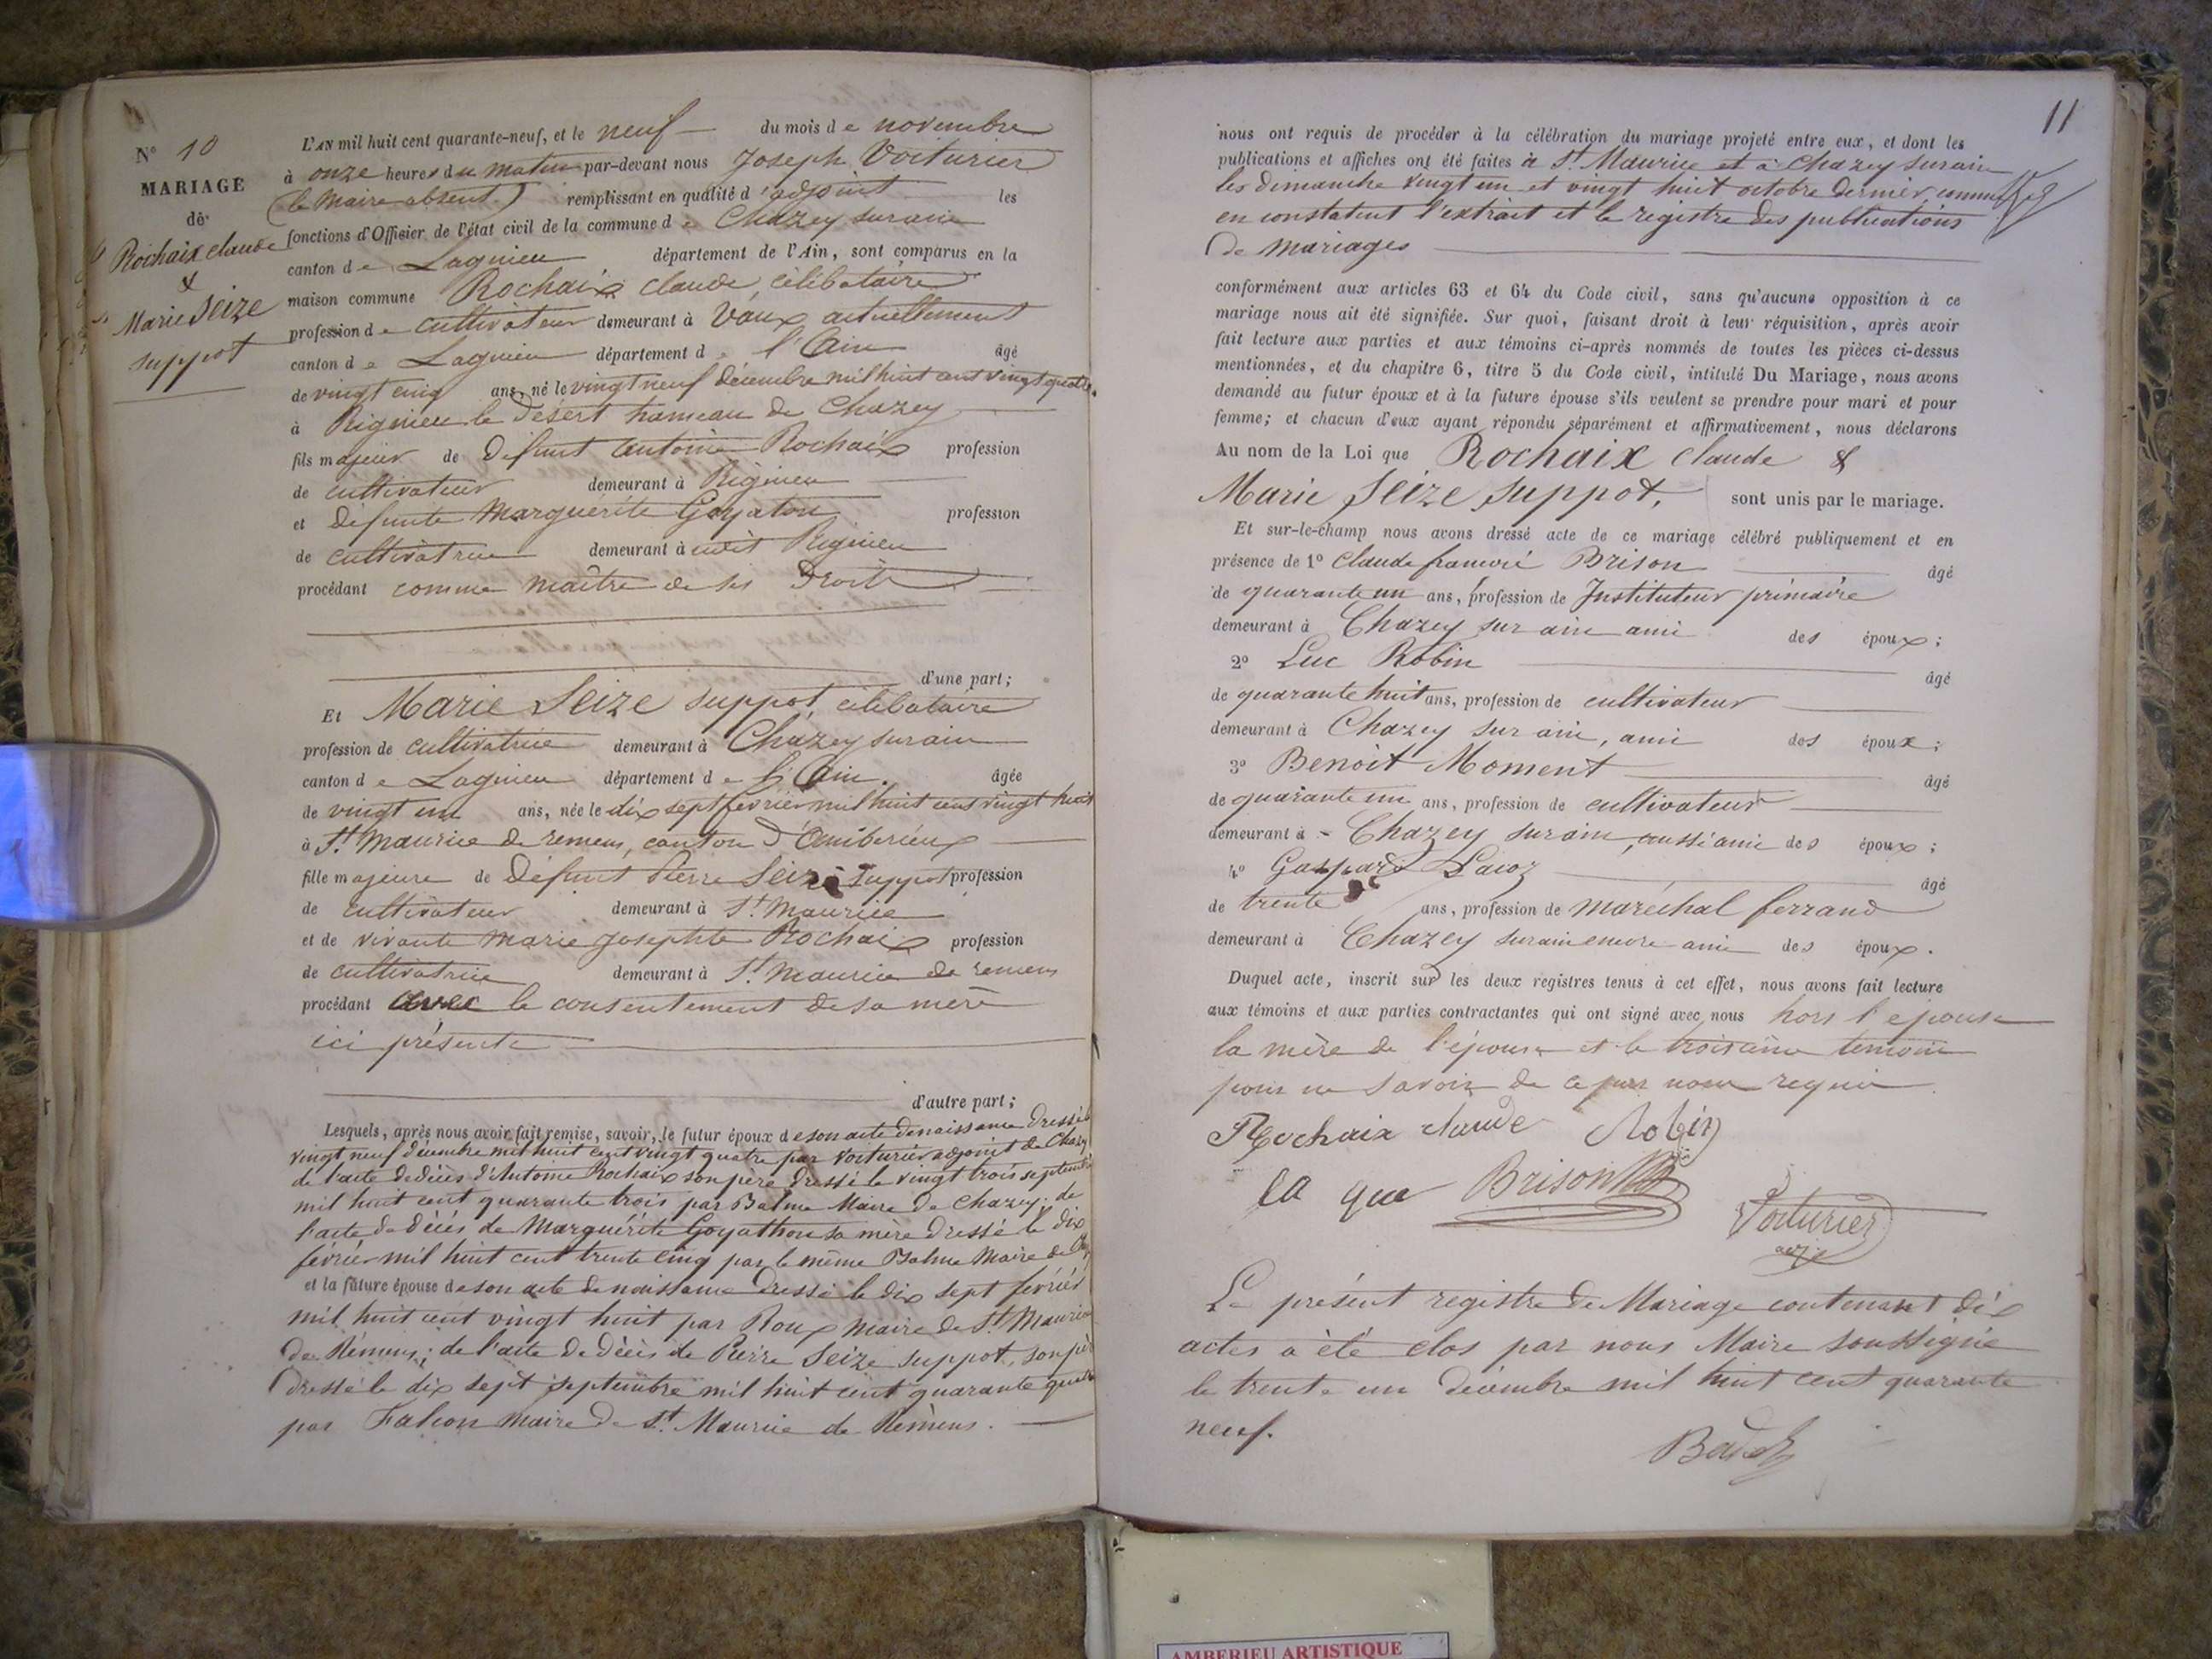 N° 10
MARIAGE
de
Rochaix claude
&
Marie Seize
suppot
L'AN mil huit cent quarante-neuf, et le neuf du mois de novembre
à onze heures du matin par-devant nous Joseph Voiturier
(le Maire absent) remplissant en qualité d'adjoint les
fonctions d'Officier de l'état civil de la commune de Chazey sur ain
canton de Lagnieu département de l'Ain, sont comparus en la
maison commune Rochaix claude, célibataire
profession de cultivateur demeurant à Vaux actuellement
canton de Lagnieu département de l'Ain âgé
de vingt cinq ans, né le vingt neuf décembre mil huit cent vingt quatre
à Rignieu le Désert hameau de Chazey
fils majeur de défunt Antoine Rochaix profession
de cultivateur demeurant à Rignieu
et défunte Marguérite Goyaton profession
de cultivatrice demeurant à audit Rignieu
procédant comme maître de ses Droits
d'une part;
Et Marie Seize suppot, célibataire
profession de cultivatrice demeurant à Chazey sur ain
canton de Lagnieu département de l'Ain. âgée
de vingt un ans, née le dix sept février mil huit cent vingt huit
à St. Maurice de remens, canton d'Ambérieux
fille majeure de Défunt Pierre Seize suppot profession
de cultivateur demeurant à St. Maurice
et de vivante Marie Josephte Rochaix profession
de cultivatrice demeurant à St. Maurice de remens
procédant avec le consentement de sa mère
ici présente
d'autre part;
Lesquels, après nous avoir fait remise, savoir, le futur époux de son acte de naissance Dressé le
vingt neuf décembre mil huit cent vingt quatre par Voiturier adjoint de Chazey
de l'acte de décès d'Antoine Rochaix son père dressé le vingt trois septembre
mil huit cent quarante trois par Balme Maire de Chazey. de
l'acte de décès de Marguérite Goyathon sa mère dressé le dix
février mil huit cent trente cinq par le même Balme Maire de
et la future épouse de son acte de naissance dressé le dix sept février
mil huit cent vingt huit par Roux maire de St. Maurice
de Rémens; de l'acte de décès de Pierre Seize suppot, son père
dressé le dix sept septembre mil huit cent quarante quatre
par Falcon maire de St. Maurice de Rémens.
11
nous ont requis de procéder à la célébration du mariage projeté entre eux, et dont les
publications et affiches ont été faites à St. Maurice et à Chazey sur ain
les dimanche vingt un et vingt huit octobre dernier, comme
en constatent l'extrait et le registre des publications
de mariages
conformément aux articles 63 et 64 du Code civil, sans qu'aucune opposition à ce
mariage nous ait été signifiée. Sur quoi, faisant droit à leur réquisition, après avoir
fait lecture aux parties et aux témoins ci-après nommés de toutes les pièces ci-dessus
mentionnées, et du chapitre 6, titre 5 du Code civil, intitulé Du Mariage, nous avons
demandé au futur époux et à la future épouse s'ils veulent se prendre pour mari et pour
femme; et chacun d'eux ayant répondu séparément et affirmativement, nous déclarons
Au nom de la Loi que Rochaix claude &
Marie Seize suppot, sont unis par le mariage.
Et sur-le-champ nous avons dressé acte de ce mariage célébré publiquement et en
présence de 1° Claude Brison âgé
de quarante un ans, profession de Instituteur primaire
demeurant à Chazey sur ain ami des époux;
2° Luc Robin âgé
de quarante huit ans, profession de cultivateur
demeurant à Chazey sur ain, ami des époux;
3° Benoit Moment âgé
de quarante un ans, profession de cultivateur
demeurant à Chazey sur ain, aussi ami des époux;
4° Gaspard âgé
de trente ans, profession de maréchal ferrand
demeurant à Chazey sur ain encore ami des époux.
Duquel acte, inscrit sur les deux registres tenus à cet effet, nous avons fait lecture
aux témoins et aux parties contractantes qui ont signé avec nous hors l'épouse
la mère de l'épouse et le troisième temoin
pour ne savoir de ce par nous requis.
Rochaix claude Robin
Brison
Voiturier
adj.
Le présent registre de Mariage contenant dix
actes a été clos par nous Maire soussigné
le trente un décembre mil huit cent quarante
neuf.
AMBERIEU ARTISTIQUE